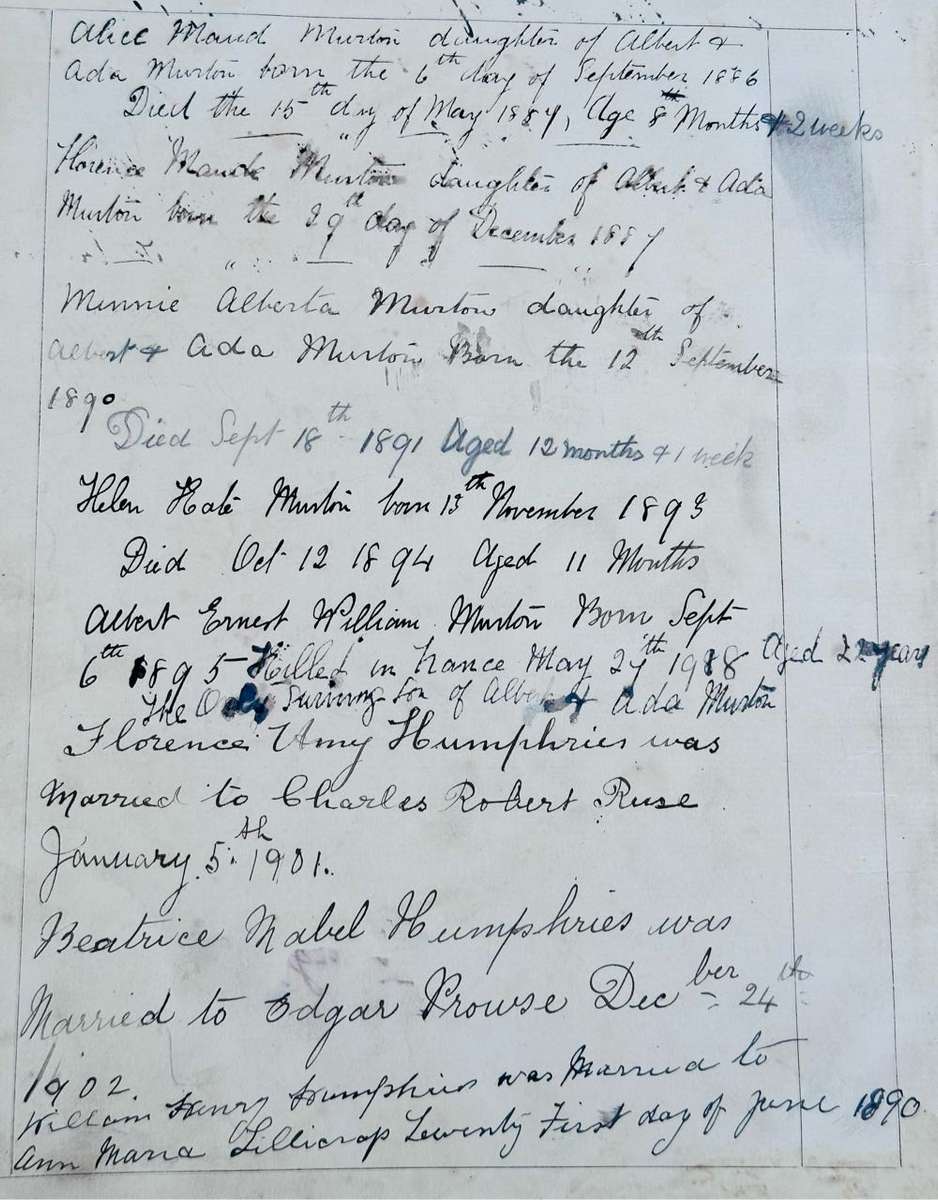 Alice Maud Murton daughter of Albert &
Ada Murton born the 6th day of September 1886
Died the 15th day of May 1887, Age 8 Months & 2 weeks
Florence Maude Murton daughter of Albert & Ada
Murton born the 29th day of December 1887
Minnie Alberta Murton daughter of
Albert & Ada Murton Born the 12th September
1890
Died Sept 18th 1891 Aged 12 months & 1 week
Helen Kate Murton born 13th November 1893
Died Oct 12 1894 Aged 11 Months
Albert Ernest William Murton Born Sept
6th 1895 Killed in France May 27th 1918 Aged 22 years
The Only Surviving Son of Albert & Ada Murton
Florence Amy Humphries was
Married to Charles Robert Ruse
January 5th 1901.
Beatrice Mabel Humphries was
Married to Edgar Prowse Decber 24th
1902.
William Henry Humphries was Married to
Ann Maria Lillicrap Twenty First day of June 1890